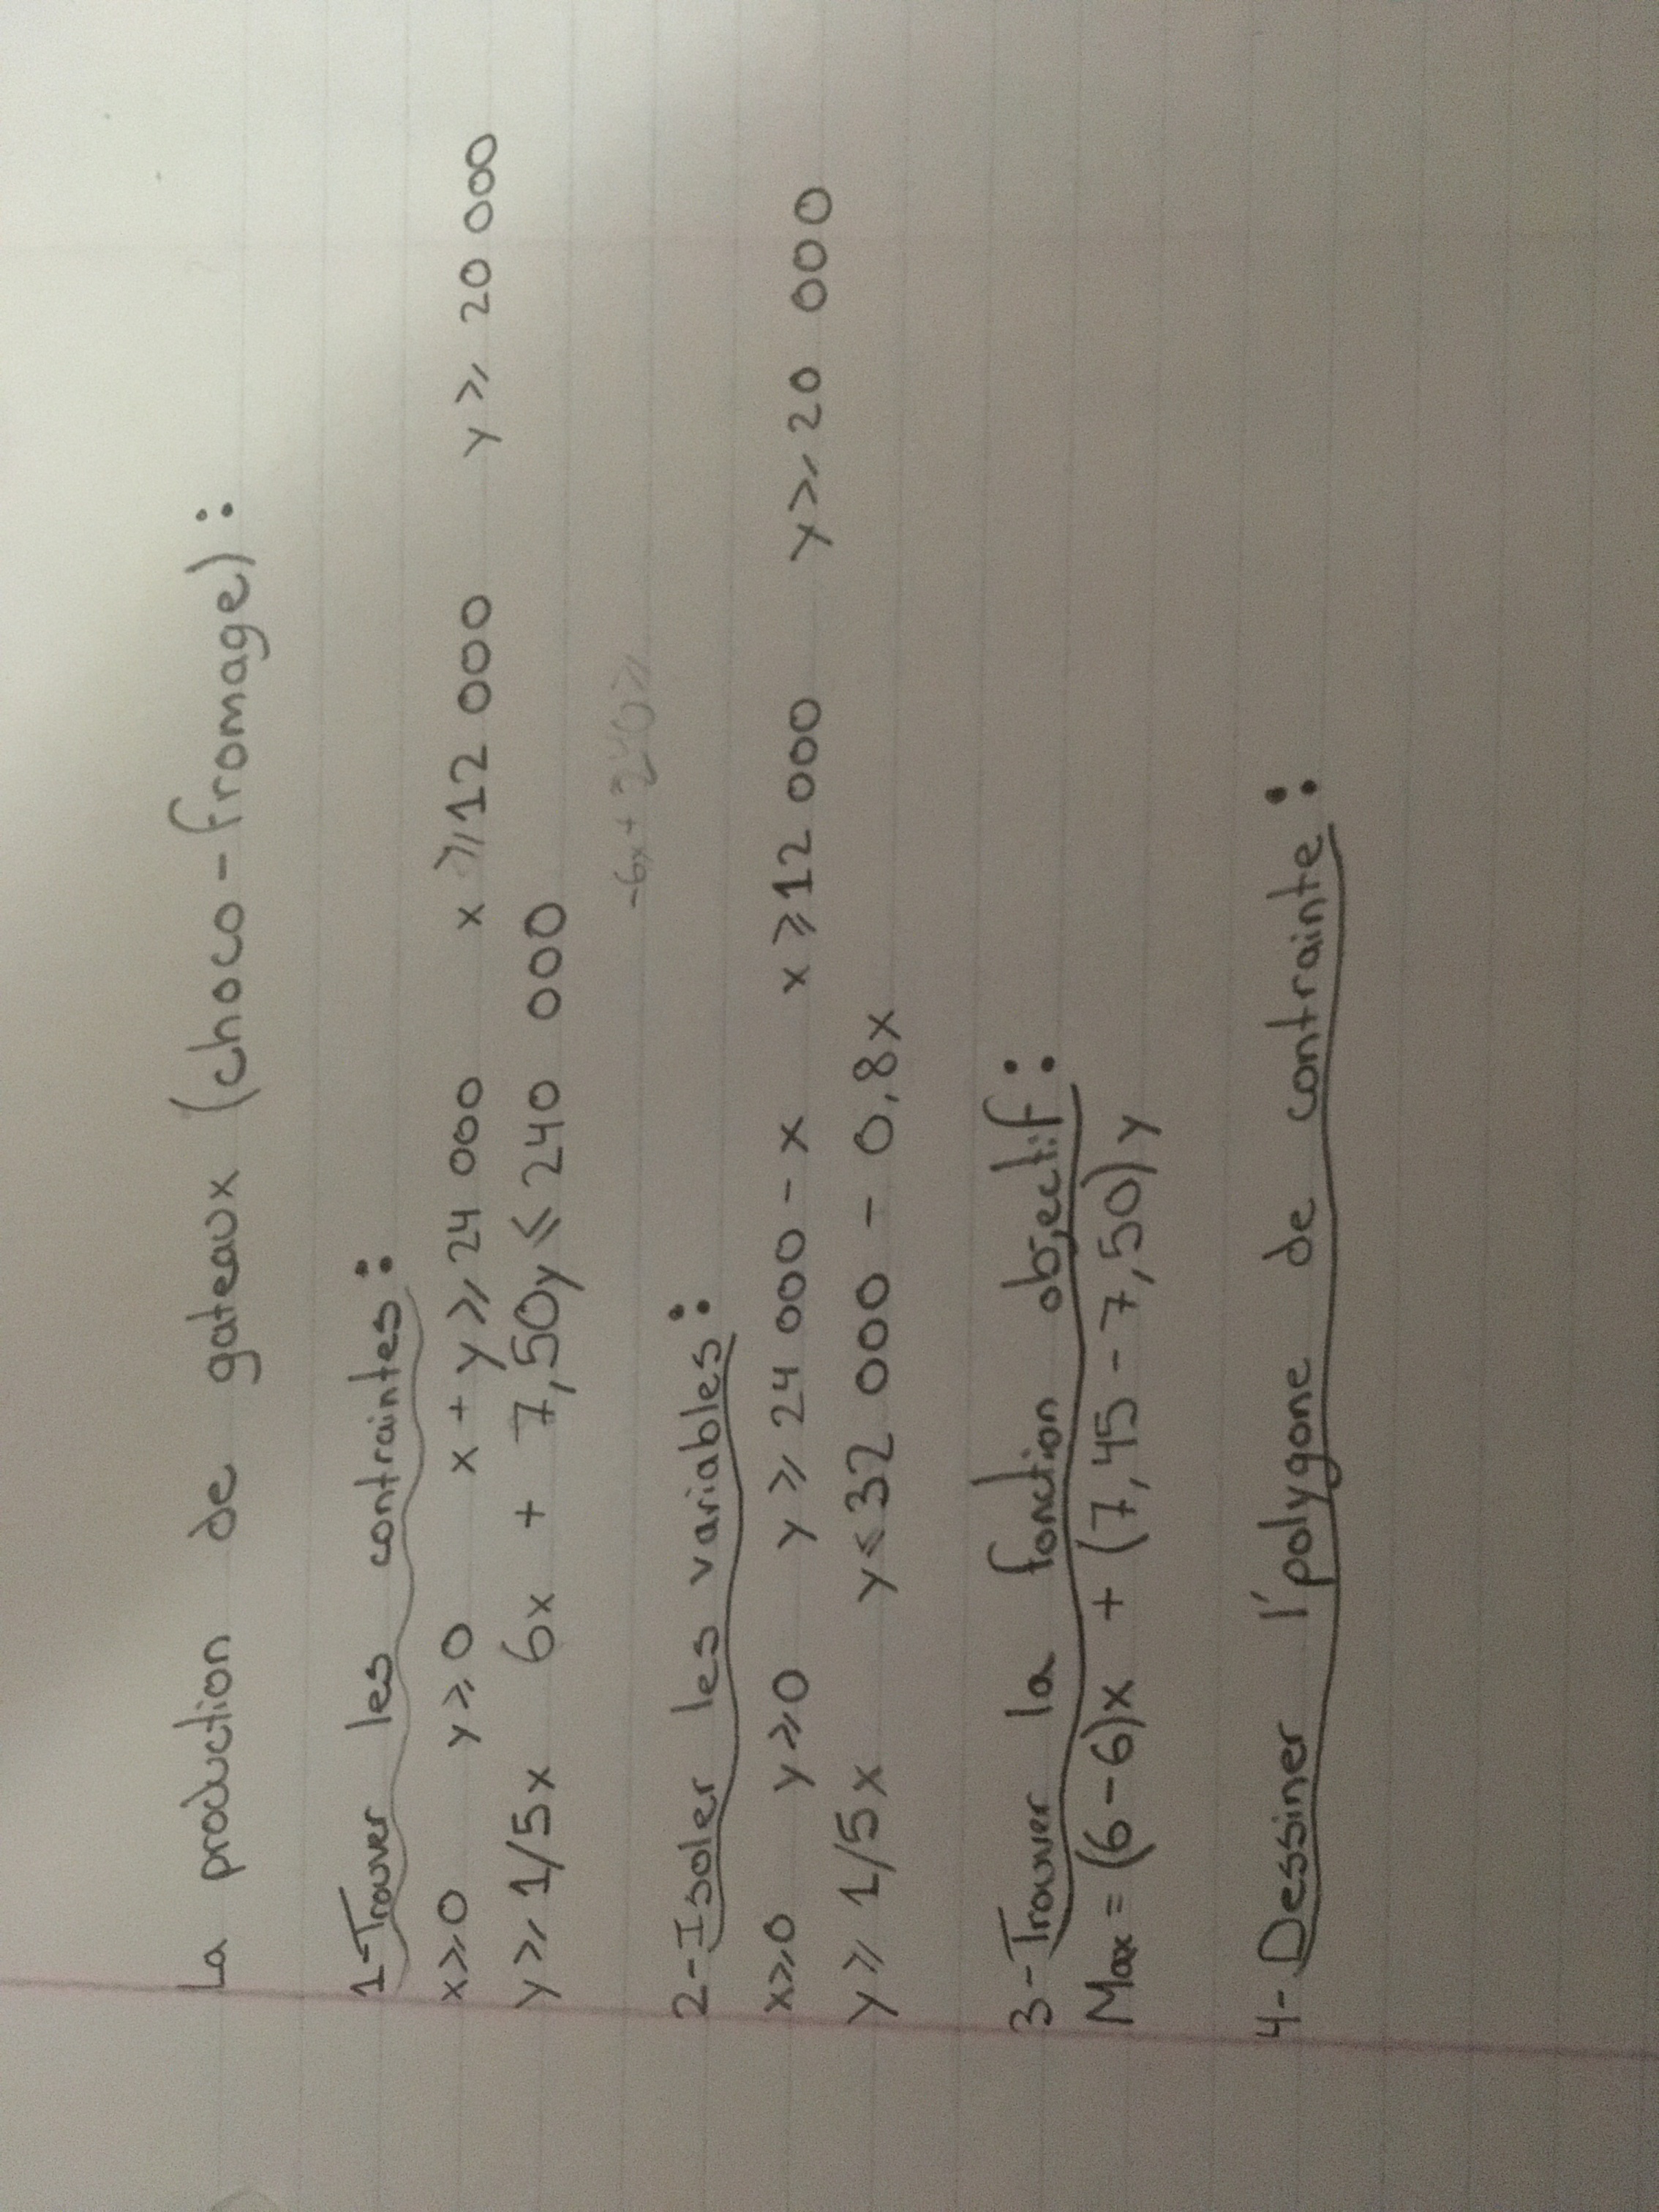 La production de gateaux (choco-fromage):
1-Trouver les contraintes:
x⩾0 y⩾0 x+y⩾24 000 x⩾12 000 y⩾20 000
y⩾1/5x 6x + 7,50y⩽240 000
-6x+240⩾
2-Isoler les variables:
x⩾0 y⩾0 y⩾24 000-x x⩾12 000 y⩾20 000
y⩾1/5x y⩽32 000 - 0,8x
3-Trouver la fonction objectif:
Max=(6-6)x + (7,45-7,50)y
4-Dessiner l'polygone de contrainte: